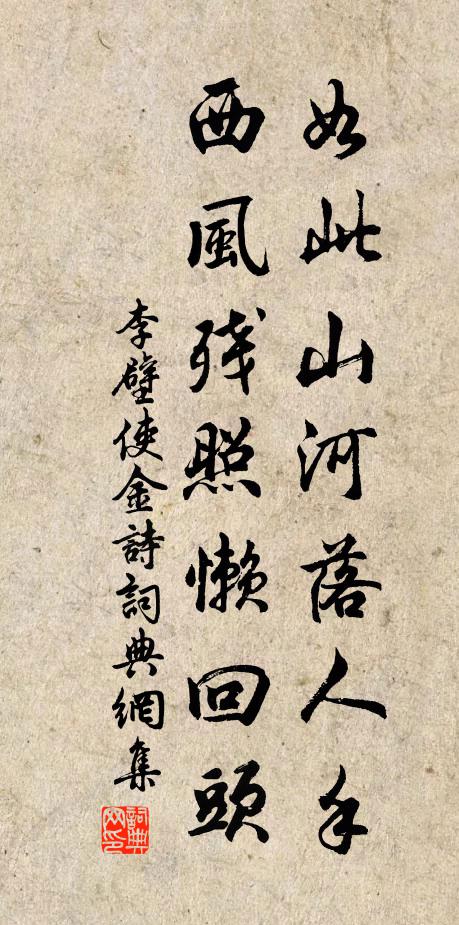 如此山河落人手
西風残照懶回頭
李壁使金詩詞典網集
詞典網印